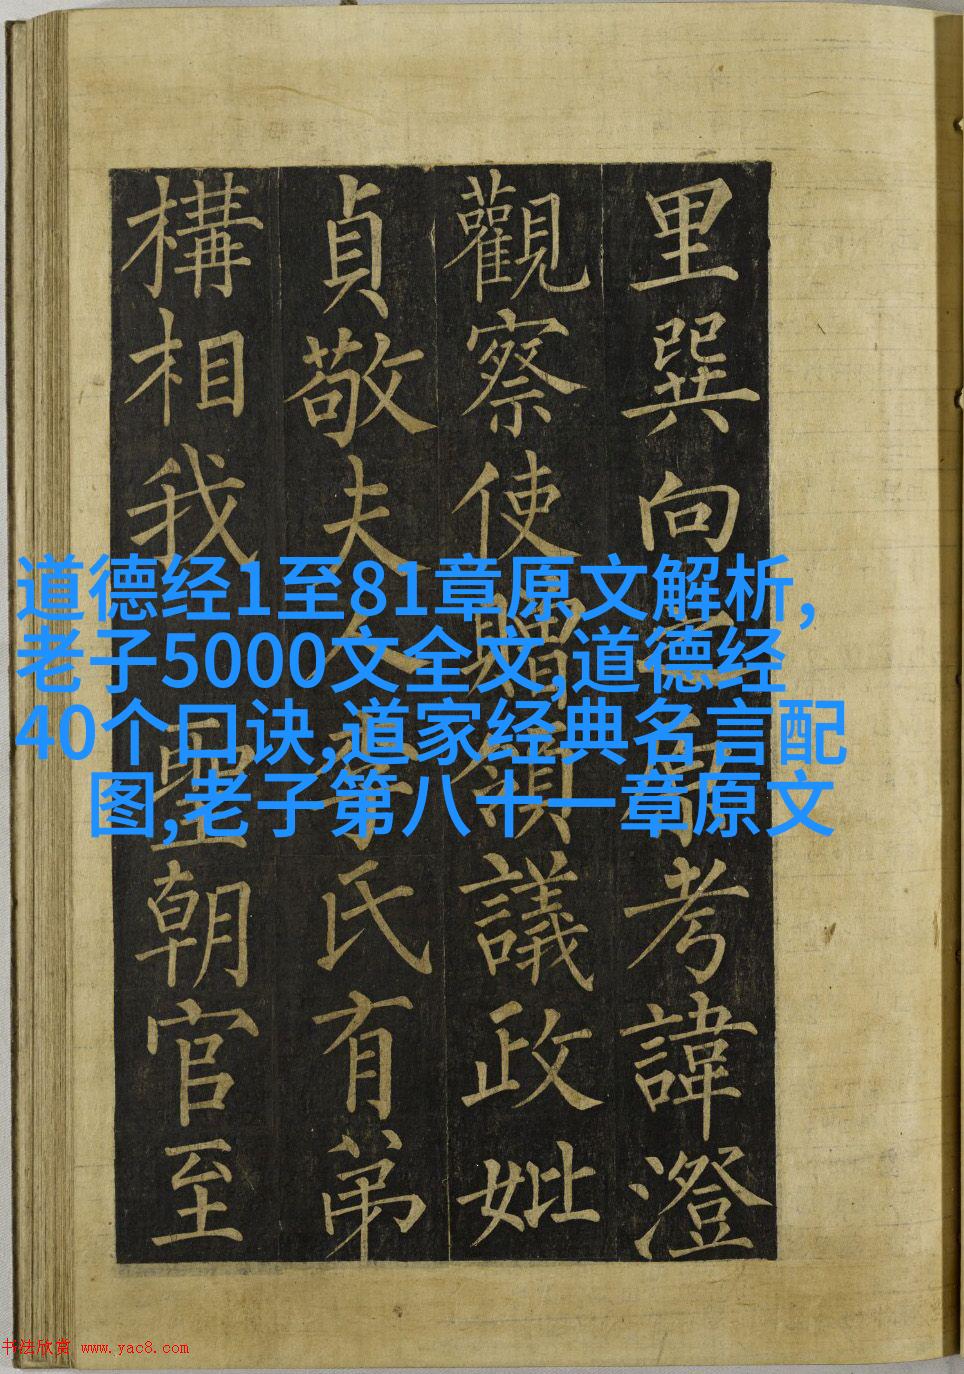 里巽向
考諱澄
觀察使贈領議政妣
貞敬夫人李氏有弟
構相我聖朝官至
道德经1至81章原文解析,
老子5000文全文,道德经
40个口诀,道家经典名言配
图,老子第八十一章原文
书法欣赏 www.yac8.com